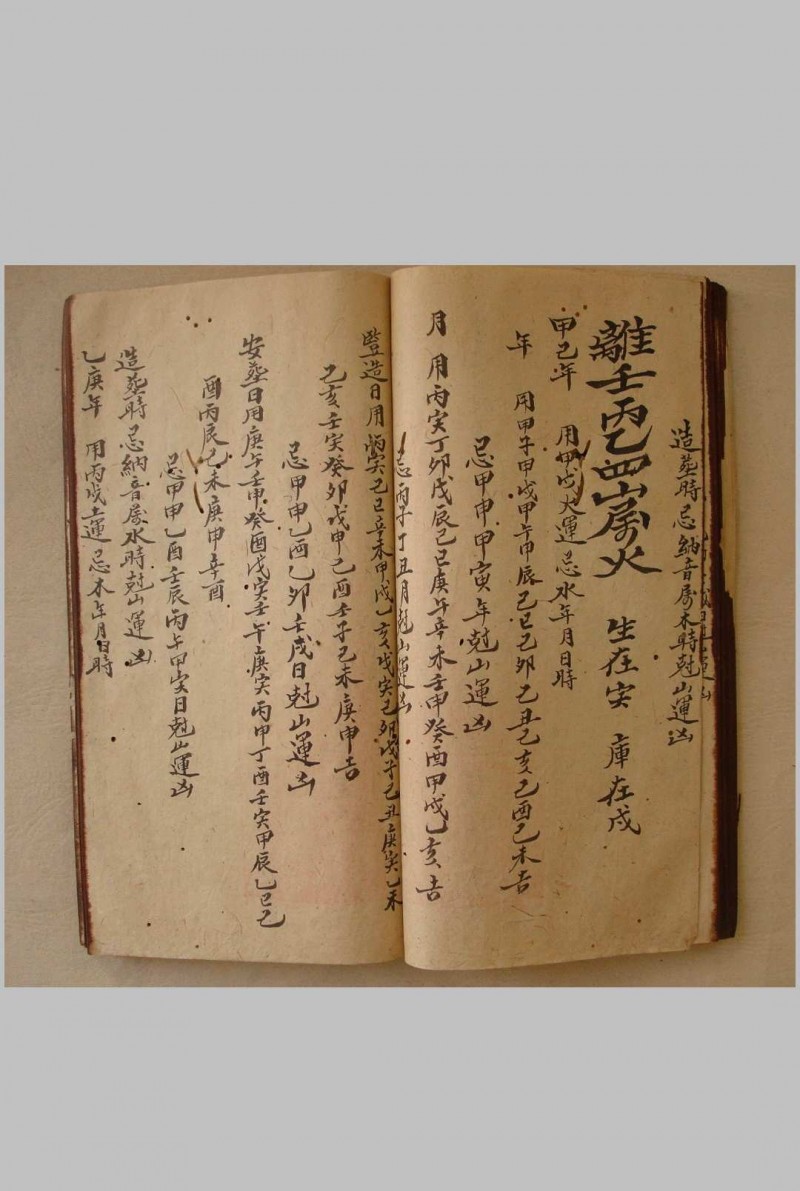 造塟時忌納音屬木時尅山運凶
離壬丙乙四山屬火 生在寅 庫在戌
甲己年 用甲戌火運忌水年月日時
年 用甲子甲戌甲午甲辰己巳己卯己丑己亥己酉己未吉
忌甲申甲寅年尅山運凶
月 用丙寅丁卯戊辰己巳庚午辛未壬申癸酉甲戌乙亥吉
忌丙子丁丑月尅山運凶
豎造日用丙寅己巳辛未甲戌乙亥戊寅己卯戊子己丑庚寅乙未
己亥壬寅癸卯戊申己酉壬子己未庚申吉
忌甲申乙酉乙卯壬戌日尅山運凶
安塟日用庚午壬申癸酉戊寅壬午庚寅丙申丁酉壬寅甲辰乙巳己
酉丙辰己未庚申辛酉
忌甲申乙酉壬辰丙午甲寅日尅山運凶
造塟時忌納音屬水時尅山運凶
乙庚年 用丙戌土運忌木年月日時